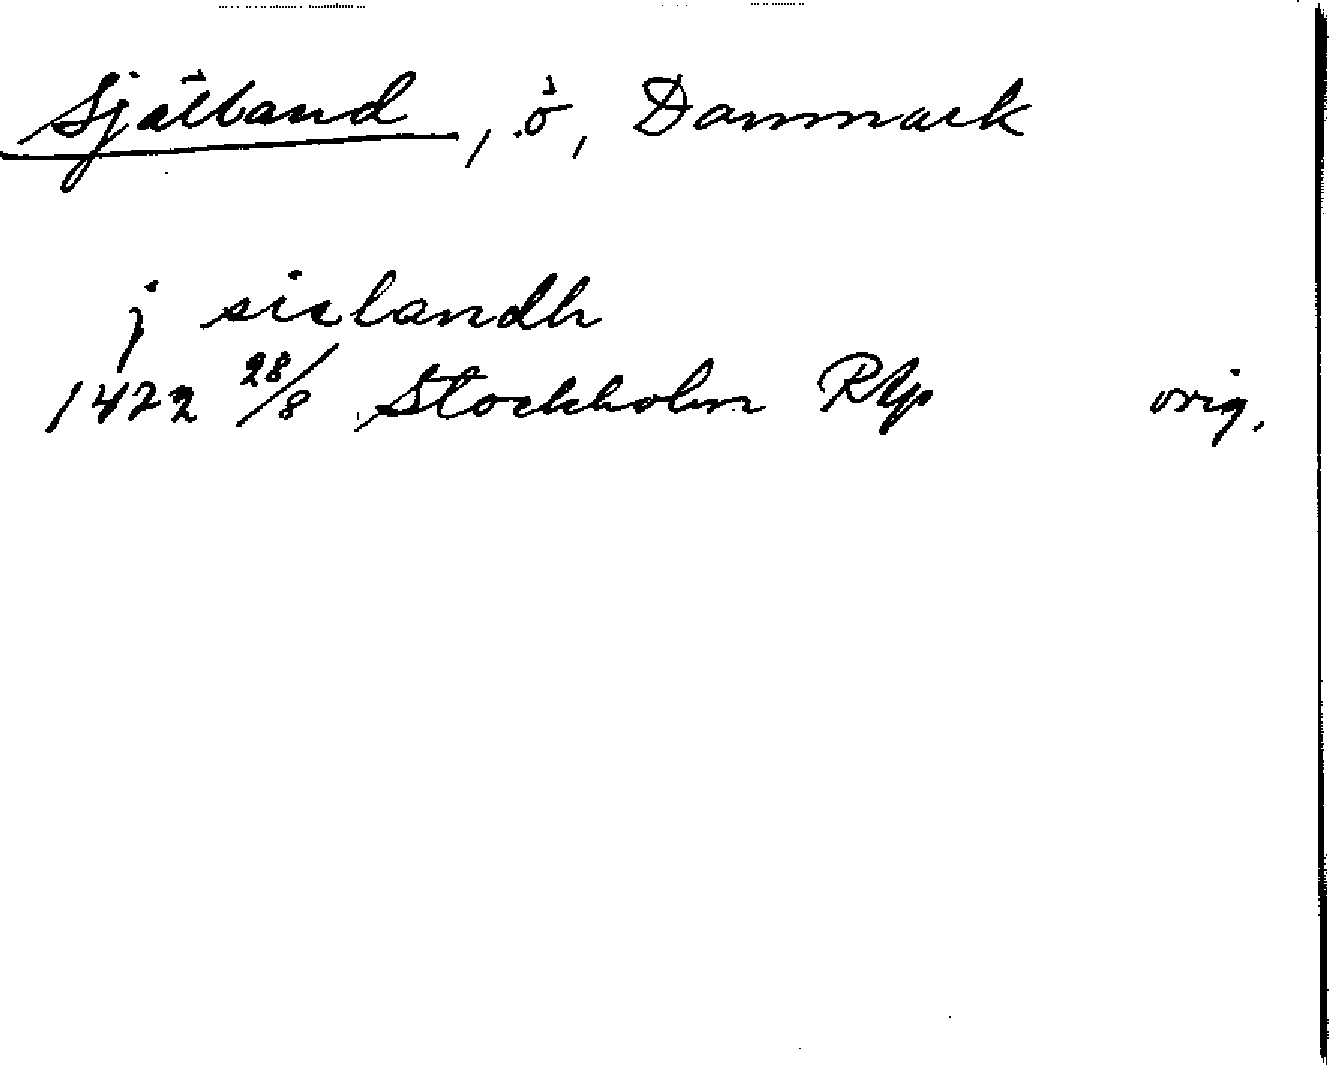 Själland, ö, Danmark
j sielandh
1472 28/8 Stockholm RAp orig.